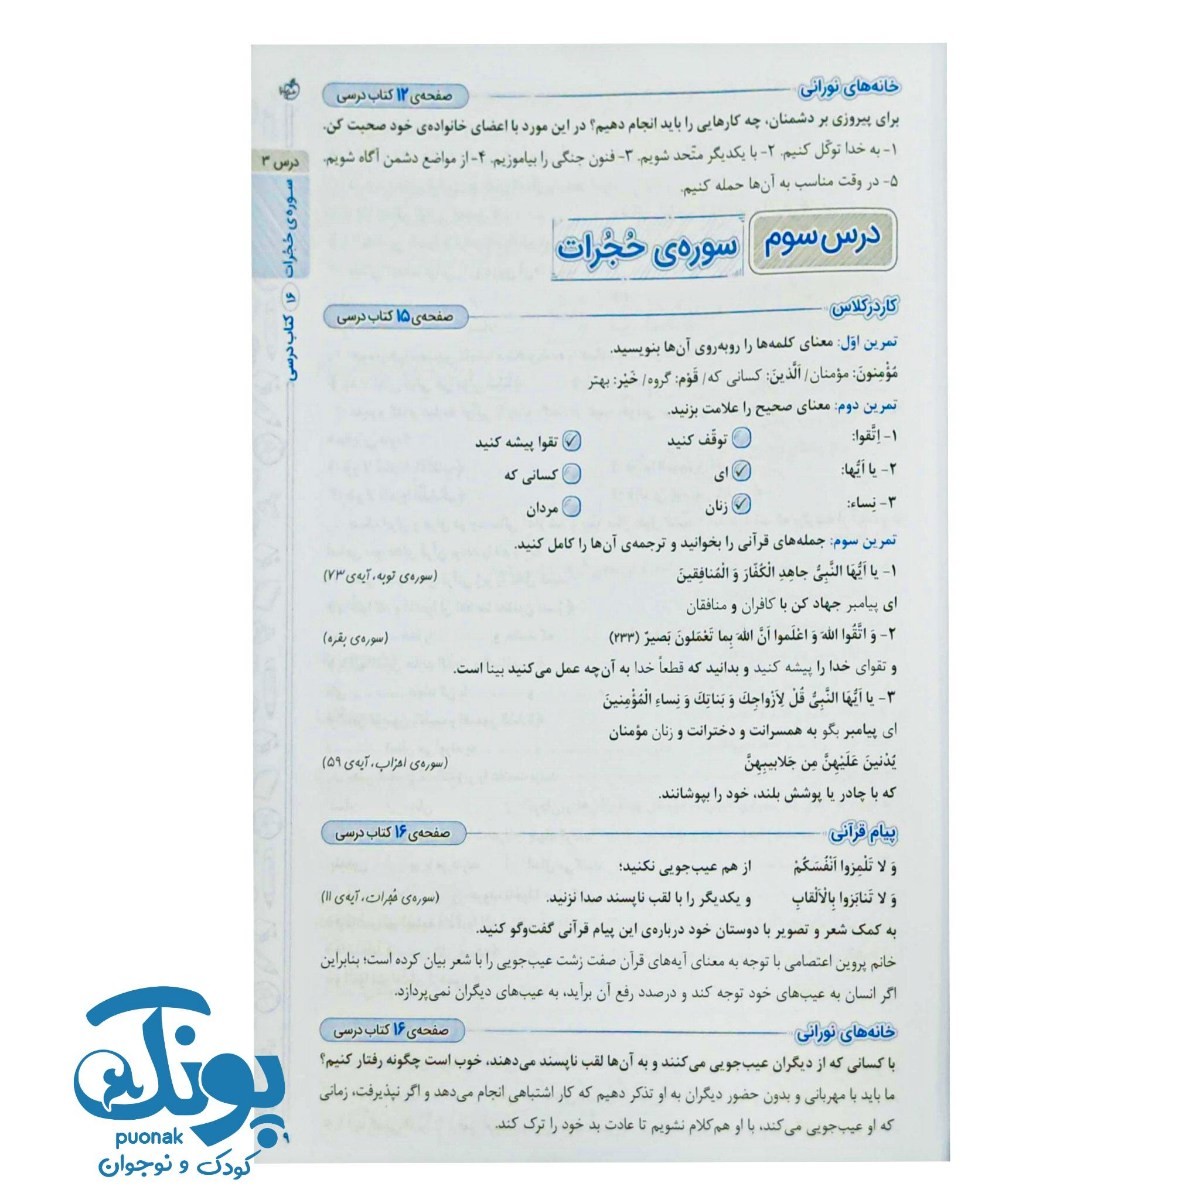 خانه‌های نورانی
صفحه‌ی ۱۲ کتاب درسی
برای پیروزی بر دشمنان، چه کارهایی را باید انجام دهیم؟ در این مورد با اعضای خانواده‌ی خود صحبت کن.
۱- به خدا توکّل کنیم. ۲- با یکدیگر متّحد شویم. ۳- فنون جنگی را بیاموزیم. ۴- از مواضع دشمن آگاه شویم.
۵- در وقت مناسب به آن‌ها حمله کنیم.
درس سوم
سوره‌ی حُجُرات
کار در کلاس
صفحه‌ی ۱۵ کتاب درسی
تمرین اوّل: معنای کلمه‌ها را روبه‌روی آن‌ها بنویسید.
مُؤْمِنونَ: مؤمنان/ اَلَّذینَ: کسانی که/ قَوْم: گروه/ خَیْر: بهتر
تمرین دوم: معنای صحیح را علامت بزنید.
۱- اِتَّقوا: توقّف کنید ✓ تقوا پیشه کنید
۲- یا اَیُّها: ✓ ای کسانی که
۳- نِساء: ✓ زنان مردان
تمرین سوم: جمله‌های قرآنی را بخوانید و ترجمه‌ی آن‌ها را کامل کنید.
۱- یا اَیُّهَا النَّبِیُّ جاهِدِ الْکُفّارَ وَ الْمُنافِقینَ (سوره‌ی توبه، آیه‌ی ۷۳)
ای پیامبر جهاد کن با کافران و منافقان
۲- وَ اتَّقُوا اللّٰهَ وَ اعْلَموا اَنَّ اللّٰهَ بِما تَعْمَلونَ بَصیرٌ (۲۳۳) (سوره‌ی بقره)
و تقوای خدا را پیشه کنید و بدانید که قطعاً خدا به آن‌چه عمل می‌کنید بینا است.
۳- یا اَیُّهَا النَّبِیُّ قُلْ لِاَزْواجِكَ وَ بَناتِكَ وَ نِساءِ الْمُؤْمِنینَ
ای پیامبر بگو به همسرانت و دخترانت و زنان مؤمنان
یُدْنینَ عَلَیْهِنَّ مِن جَلابیبِهِنَّ (سوره‌ی احزاب، آیه‌ی ۵۹)
که با چادر یا پوشش بلند، خود را بپوشانند.
پیام قرآنی
صفحه‌ی ۱۶ کتاب درسی
وَ لا تَلْمِزوا اَنْفُسَکُمْ از هم عیب‌جویی نکنید؛
وَ لا تَنابَزوا بِالْاَلْقابِ و یکدیگر را با لقب ناپسند صدا نزنید. (سوره‌ی حُجرات، آیه‌ی ۱۱)
به کمک شعر و تصویر با دوستان خود درباره‌ی این پیام قرآنی گفت‌وگو کنید.
خانم پروین اعتصامی با توجه به معنای آیه‌های قرآن صفت زشت عیب‌جویی را با شعر بیان کرده است؛ بنابراین
اگر انسان به عیب‌های خود توجه کند و درصدد رفع آن برآید، به عیب‌های دیگران نمی‌پردازد.
خانه‌های نورانی
صفحه‌ی ۱۶ کتاب درسی
با کسانی که از دیگران عیب‌جویی می‌کنند و به آن‌ها لقب ناپسند می‌دهند، خوب است چگونه رفتار کنیم؟
ما باید با مهربانی و بدون حضور دیگران به او تذکر دهیم که کار اشتباهی انجام می‌دهد و اگر نپذیرفت، زمانی
که او عیب‌جویی می‌کند، با او هم‌کلام نشویم تا عادت بد خود را ترک کند.
درس ۳
سوره‌ی حُجُرات
۱۶ کتاب درسی
۹
پونک
puonak
کودک و نوجوان